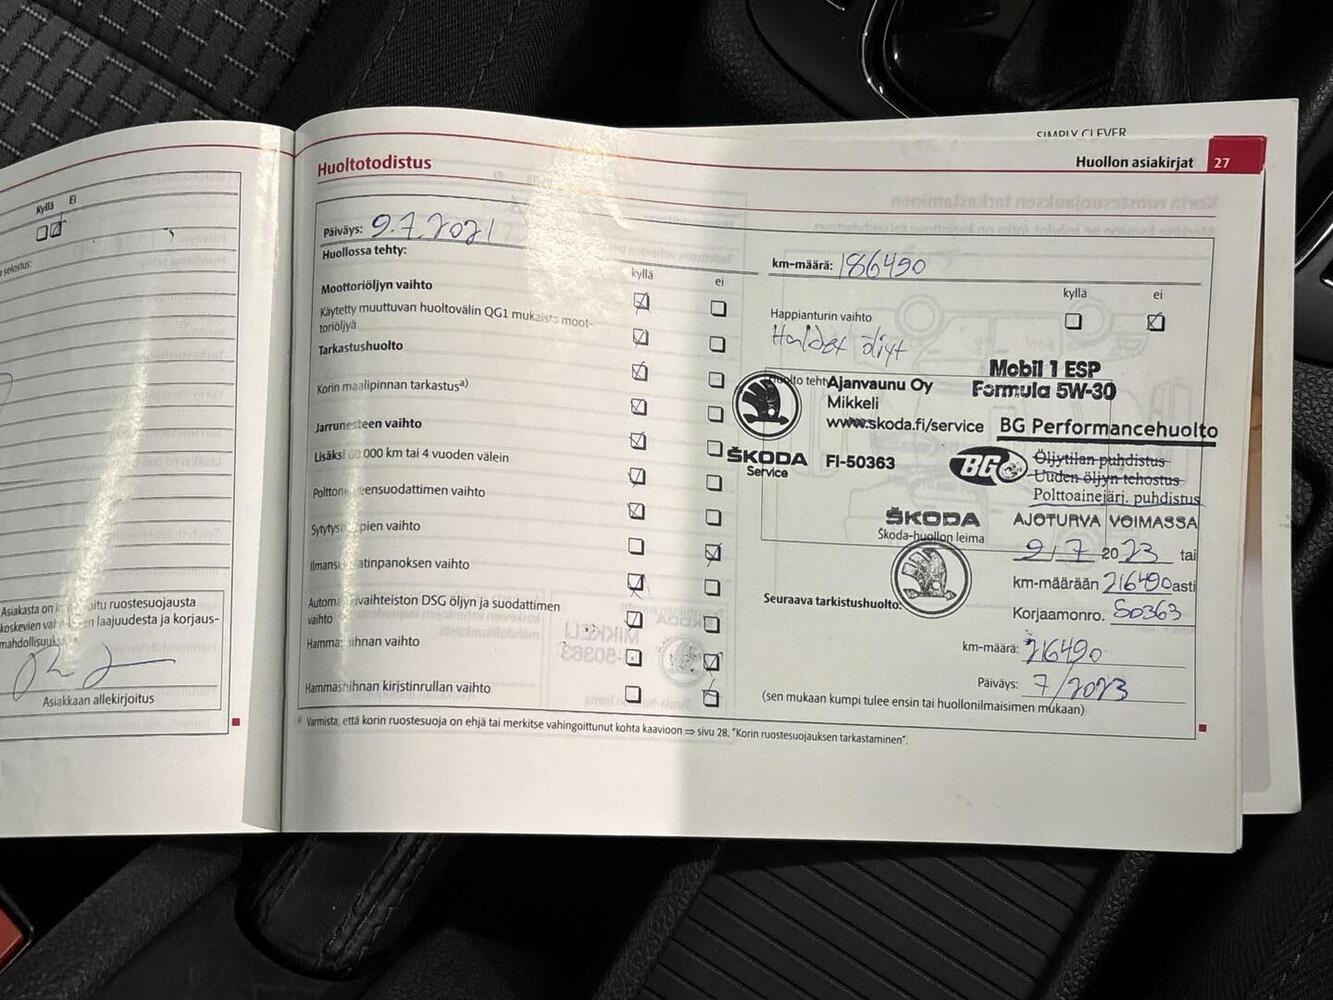 SIMPLY CLEVER
Huoltotodistus
Huollon asiakirjat 27
Päiväys: 9.7.2021
Huollossa tehty:
kyllä ei
Moottoriöljyn vaihto
Käytetty muuttuvan huoltovälin QG1 mukaista moot-
toriöljyä
Tarkastushuolto
Korin maalipinnan tarkastus a)
Jarrunesteen vaihto
Lisäksi 000 km tai 4 vuoden välein
vaihto
Sytytys vaihto
panoksen vaihto
vaihteiston DSG öljyn ja suodattimen
vaihto
vaihto
Hammashihnan kiristinrullan vaihto
km-määrä: 186490
kyllä ei
Happianturin vaihto
Haldex öljyt
Ajanvaunu Oy
Mikkeli
www.skoda.fi/service
ŠKODA FI-50363
Service
Mobil 1 ESP
Formula 5W-30
BG Performancehuolto
BG
Öljytilan puhdistus
Uuden öljyn tehostus
Polttoainejärj. puhdistus
ŠKODA
Skoda-huollon leima
AJOTURVA VOIMASSA
9/7 2023 tai
km-määrään 216490 asti
Korjaamonro. 50363
Seuraava tarkistushuolto:
km-määrä: 216490
Päiväys: 7/2023
(sen mukaan kumpi tulee ensin tai huollonilmaisimen mukaan)
a) Varmista, että korin ruostesuoja on ehjä tai merkitse vahingoittunut kohta kaavioon ⇒ sivu 28, "Korin ruostesuojauksen tarkastaminen".
Kyllä Ei
selostus:
Asiakasta on ruostesuojausta
koskevien laajuudesta ja korjaus-
Asiakkaan allekirjoitus